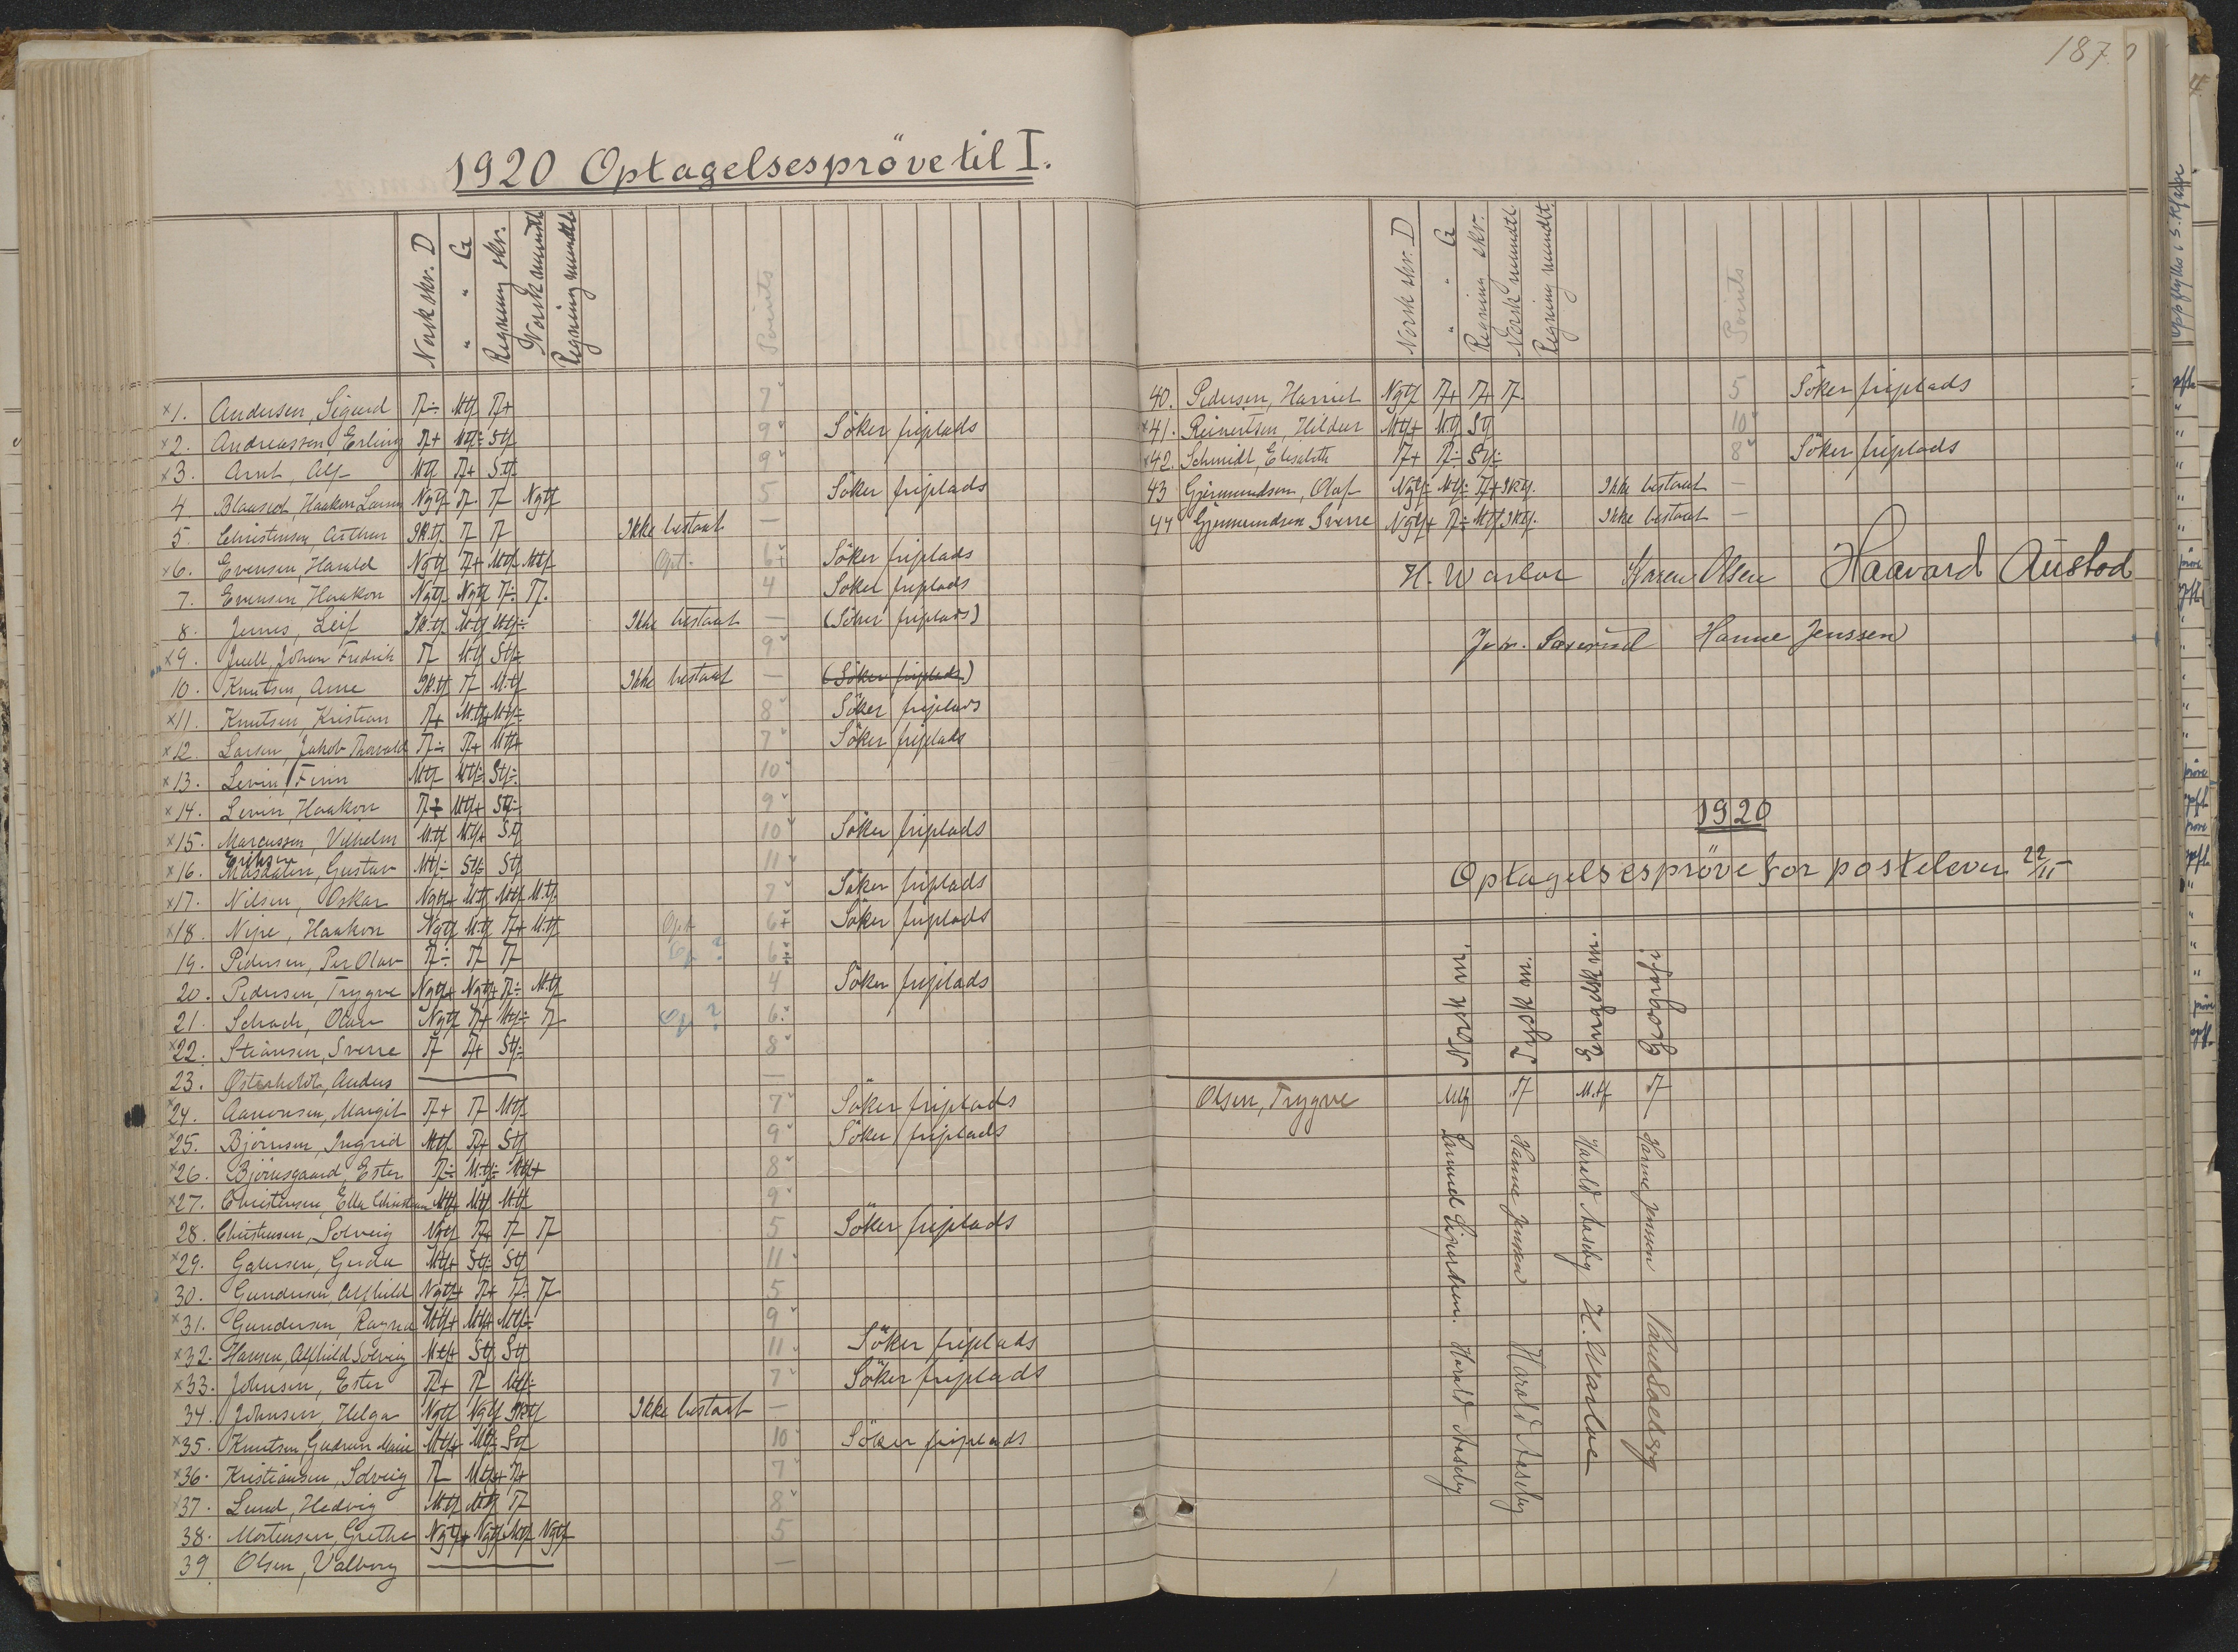 187.
1920 Optagelsespröve til I.
Norsk skr. D
" " G
Regning skr.
Norsk mundtl.
Regning mundtl.
Points
×1. Andersen, Sigurd T÷ Mtf T+ 7
×2. Andreassen, Erling T+ Mtf÷ Stf 9 Söker friplads
×3. Arnt, Alf Mtf T+ Stf 9
4 Haakon Ngtf T T Ngtf 5 Söker friplads
5. Christensen, Arthur Iktf T T Ikke bestaat —
×6. Evensen, Harald Ngtf T+ Mtf Mtf Opt. 6+ Söker friplads
7. Evensen Haakon Ngtf Ngtf T÷ T. 4 Söker friplads
8. Leif Iktf Mtf Mtf÷ Ikke bestaat — (Söker friplads)
×9. Juell, Johan Fredrik T Mtf Stf÷ 9
10. Knutsen, Arne Iktf T Mtf Ikke bestaat — (Söker friplads)
×11. Knutsen, Kristian T+ Mtf+ Mtf÷ 8 Söker friplads
×12. Larsen, Jakob Thorvald T÷ T+ Mtf+ 7 Söker friplads
×13. Levin, Finn Mtf Mtf÷ Stf÷ 10
×14. Levin, Haakon T÷ Mtf+ Stf÷ 9
×15. Marcussen, Vilhelm Mtf Mtf+ Stf 10 Söker friplads
Eriksen
×16. Gustav Mtf÷ Stf÷ Stf 11
×17. Nilsen, Oskar Ngtf+ Mtf Mtf Mtf 7 Söker friplads
×18. Nipe, Haakon Ngtf Mtf T+ Mtf Opt 6+ Söker friplads
19. Pedersen, Per Olav T÷ T T Op? 6÷
20. Pedersen, Trygve Ngtf+ Ngtf+ T÷ Mtf 4 Söker friplads
21. Schach, Olav Ngtf T+ Mtf÷ T Op? 6÷
×22. Stiansen, Sverre T T+ Stf÷ 8
23. Østerholdt, Anders — —
×24. Aanonsen, Margit T+ T Mtf 7 Söker friplads
×25. Björnsen, Ingrid Mtf T+ Stf 9 Söker friplads
×26. Björnsgaard, Ester T÷ Mtf÷ Mtf+ 8
×27. Christensen, Ella Christiane Mtf+ Mtf Mtf 9
28. Christensen, Solveig Ngtf T+ T T 5 Söker friplads
×29. Gerda Mtf+ Stf÷ Stf 11
30. Gundersen, Alfhild Ngtf+ T+ T÷ T 5
×31. Gundersen, Ragna Mtf+ Mtf+ Mtf÷ 9
×32. Hansen, Alfhild Solveig Mtf+ Stf Stf 11 Söker friplads
×33. Johnsen, Ester T+ T Mtf÷ 7 Söker friplads
34. Johnsen, Helga Ngtf Ngtf Iktf Ikke bestaat —
×35. Knutsen, Gudrun Marie Mtf+ Mtf÷ Stf 10 Söker friplads
×36. Kristiansen, Solveig T Mtf+ T+ 7
×37. Lund, Hedvig Mtf Mtf T 8
38. Mortensen, Grethe Ngtf+ Ngtf Mtf Ngtf 5
39 Olsen, Valborg — —
Norsk skr. D
" " G
Regning skr.
Norsk mundtl.
Regning mundtl.
Points
40. Pedersen, Harriet Ngtf T+ T+ T 5 Söker friplads
×41. Reinertsen, Hildur Mtf+ Mtf Stf 10
×42. Schmidt, Elisabeth T+ T÷ Stf÷ 8 Söker friplads
43 Gjermundsen, Olaf Ngtf÷ Mtf÷ T+ Iktf. Ikke bestaat —
44 Gjermundsen Sverre Ngtf+ T÷ Mtf Iktf. Ikke bestaat —
H. Warloe Karen Olsen Haavard Austad
Hanne Jenssen
1920
Optagelsespröve for postelever 22/11
Norsk m.
Tysk m.
Engelsk m.
Geografi.
Olsen, Trygve Mtf T Mtf T
Harald Aaseby
Hanne Jenssen Harald Aaseby
Harald Aaseby H. Warloe
Hanne Jenssen